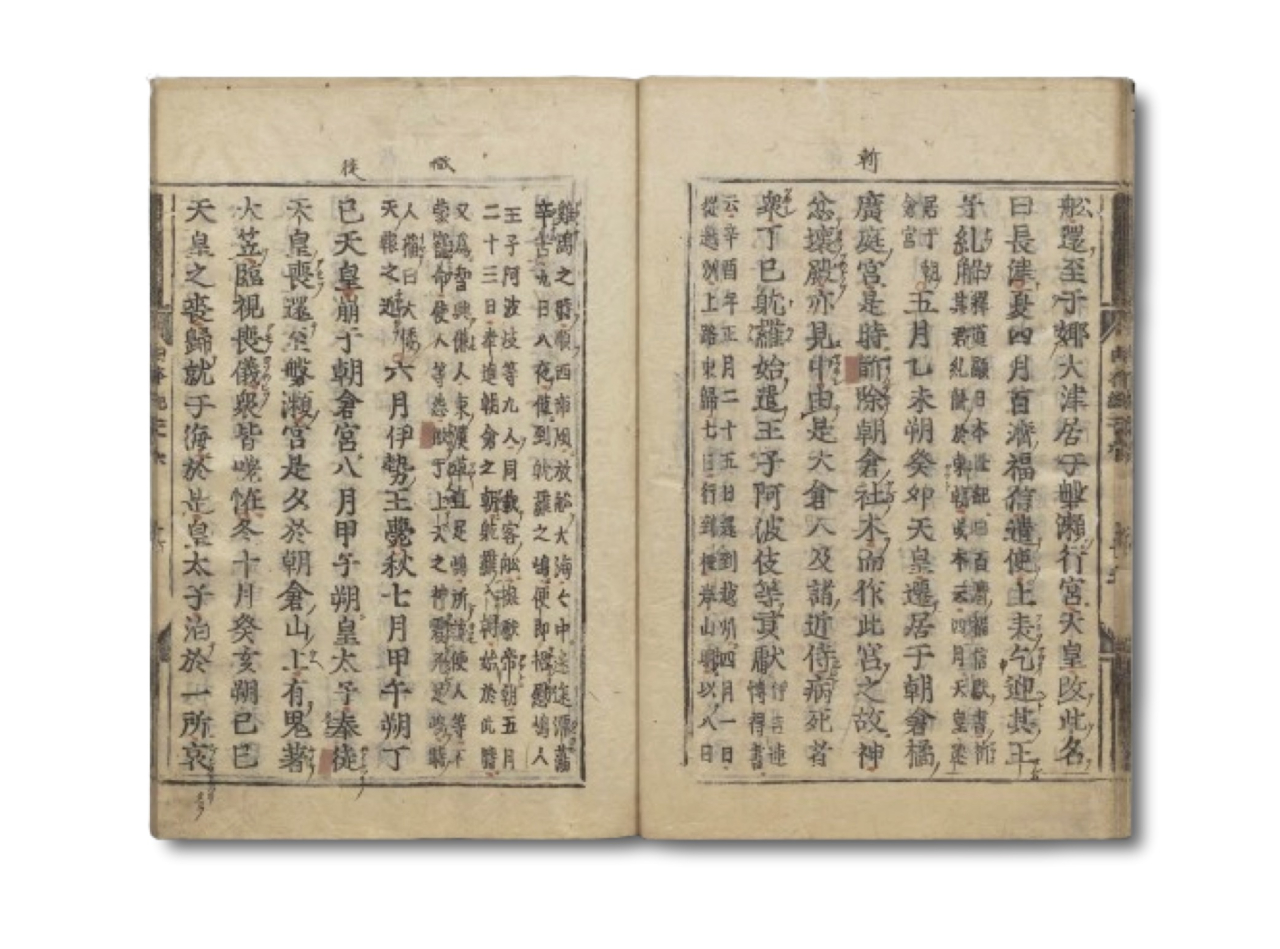 斮
舩還至于娜大津居于磐瀬行宮天皇改此名
曰長津夏四月百濟福信遣使上表乞迎其王
子糺解釋道顯日本世記曰百濟福信獻書祈
其君糺解於東朝或本云四月天皇遷
居于朝
倉宮五月乙未朔癸卯天皇遷居于朝倉橘
廣庭宮是時斮除朝倉社木而作此宮之故神
忿壞殿亦見中由是大舍人及諸近侍病死者
衆丁巳躭羅始遣王子阿波伎等貢獻伊吉連
博得書
云辛酉年正月二十五日還到越州四月一日
從越州上路東歸七日行到檉岸山明以八日
徹
徙
雞鳴之時順西南風放舩大海々中迷途漂蕩
辛苦九日八夜僅到躭羅之嶋便即招慰嶋人
王子阿波岐等九人同載客舩擬獻帝朝五月
二十三日奉進朝倉之朝躭羅入朝始於此時
又爲智興傔人東漢草直足嶋所讒使人等不
蒙寵命使人等怨徹于上天之神震死足嶋時
人稱曰大倭
天報之近六月伊勢王薨秋七月甲午朔丁
巳天皇崩于朝倉宮八月甲午朔皇太子奉徙
天皇喪還至磐瀬宮是夕於朝倉山上有鬼著
大笠臨視喪儀衆皆嗟恠冬十月癸亥朔己巳
天皇之喪歸就于海於是皇太子泊於一所哀